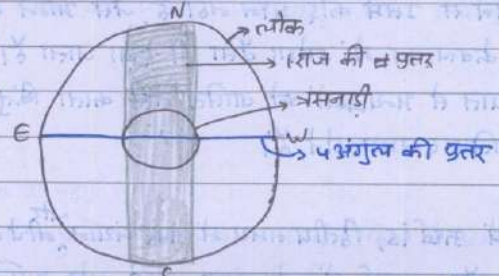 N
लोक
1राज की प्रतर
त्रसनाड़ी
E
W
५ अंगुल की प्रतर
S